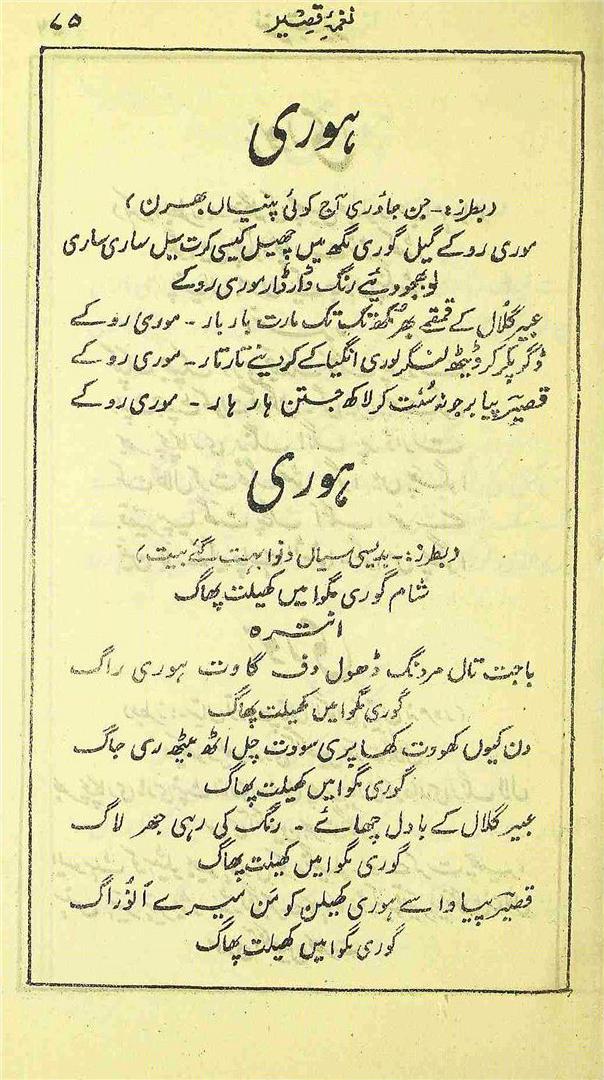 نغمۂ قیصیر
۸۵
ہوری
(بطرز:۔ جن جاؤری آج کوئی پنیاں بھرن)
موری روکے گیل گوری مگھ میں چھیل کیسی کرت سیل ساری ساری
بھجودیئے رنگ ڈار ڈار موری روکے
عبیر گلال کے قمقمے بھر مکھ تک تک مارت بار بار ۔ موری روکے
ڈگر پکر کر ڈیٹھ لنگر لوری انگیا کے کردینے تار تار ۔ موری روکے
قصیرؔ پیا برجو نہ سُنت کر لاکھ جتن ہار ہار ۔ موری روکے
ہوری
(بطرز:۔ بدیسی سیاں دنوا بہت گئے بیت)
شام گوری مگوا میں کھیلت پھاگ
انترہ
باجت تال مردنگ ڈھول دف گاوت ہوری راگ
گوری مگوا میں کھیلت پھاگ
دن کیوں کھووت کھاپری سووت چل اٹھ بیٹھ ری جاگ
گوری مگوا میں کھیلت پھاگ
عبیر گلال کے بادل چھائے ۔ رنگ کی رہی جھر لاگ
گوری مگوا میں کھیلت پھاگ
قصیرؔ پیا واسے ہوری کھیلن کو مَن میرے انُوراگ
گوری مگوا میں کھیلت پھاگ